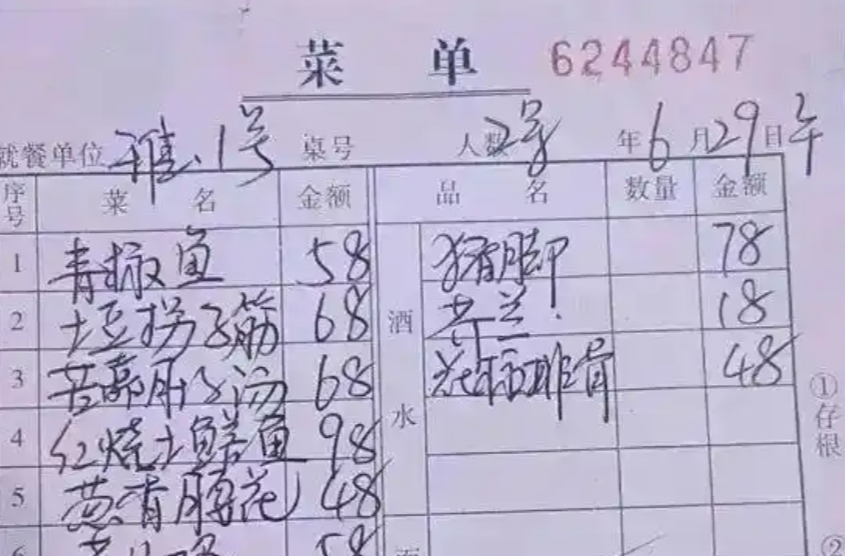 菜 单 6244847
就餐单位 雅.1号 桌号 人数 2号 年 6 月 29 日 午
序号 菜 名 金额 品 名 数量 金额
1 青椒鱼 58 酒 猪脚 78
2 土豆拐子筋 68 芥兰 18
3 68 排骨 48
4 红烧土鳝鱼 98 水
5 葱香腰花 48
6 58
①存根
②